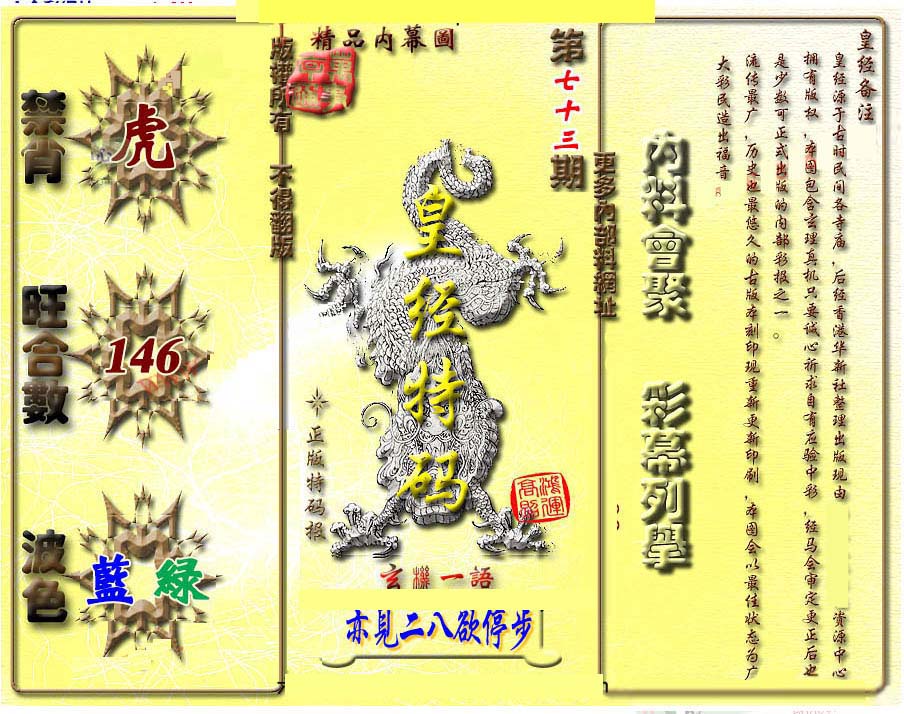 精品内幕圖
版權所有 不得翻版
第七十三期
更多內部料網址
禁肖
虎
旺合數
146
波色
藍 綠
皇经特码
正版特码报
鴻運高照
玄機一語
亦見二八欲停步
內料會聚 彩幕列舉
皇经备注
皇经源于古时民间各寺庙,后经香港华新社整理出版现由 资源中心
拥有版权,本图包含玄理真机只要诚心祈求自有应验中彩,经马会审定更正后也
是少数可正式出版的内部彩报之一。
流传最广,历史也最悠久的古版本刻印现重新更新印刷,本图会以最佳状态为广
大彩民造出福音